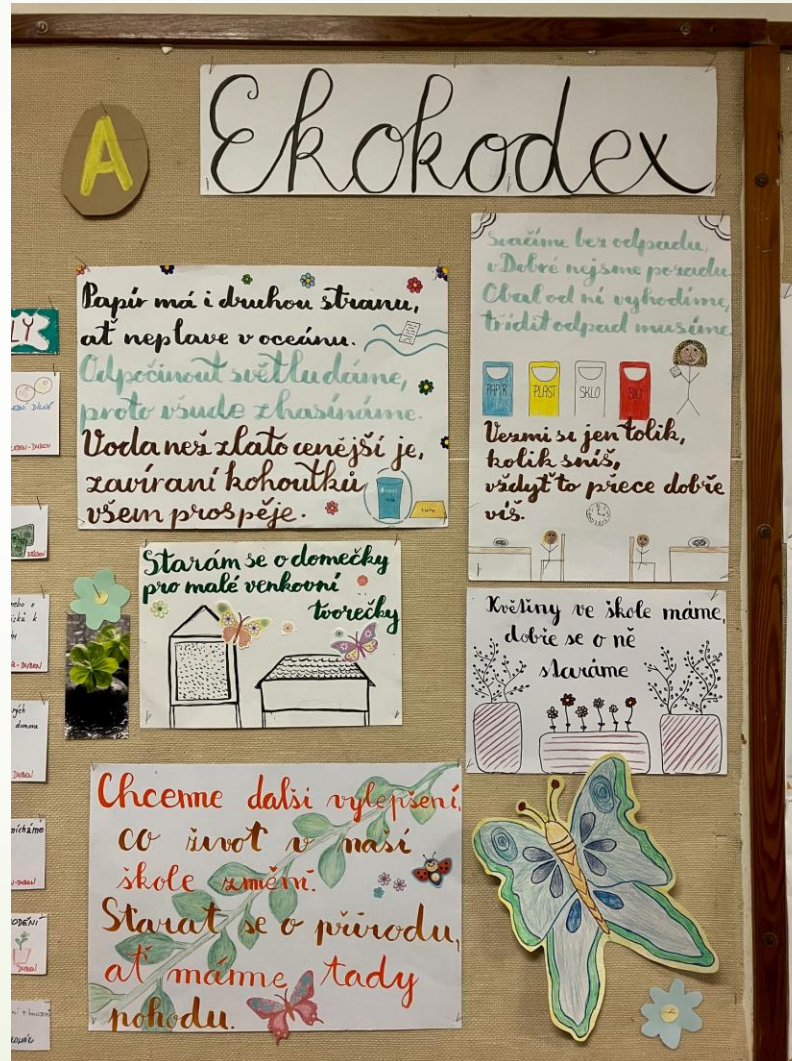 A
Ekokodex
Papír má i druhou stranu,
ať neplave v oceánu.
Odpočinout světlu dáme,
proto všude zhasínáme.
Voda než zlato cenější je,
zavíraní kohoutků
všem prospěje.
Svačíme bez odpadu,
v Dobré nejsme pozadu.
Obal od ní vyhodíme,
třídit odpad musíme
PAPÍR
PLAST
SKLO
BIO
Vezmi si jen tolik,
kolik sníš,
vždyť to přece dobře
víš.
Starám se o domečky
pro malé venkovní
tvorečky
Květiny ve škole máme,
dobře se o ně
staráme
Chceme další vylepšení,
co život v naší
škole změní.
Starat se o přírodu,
ať máme tady
pohodu.
LY
DUBEN
DUBEN
DUBEN